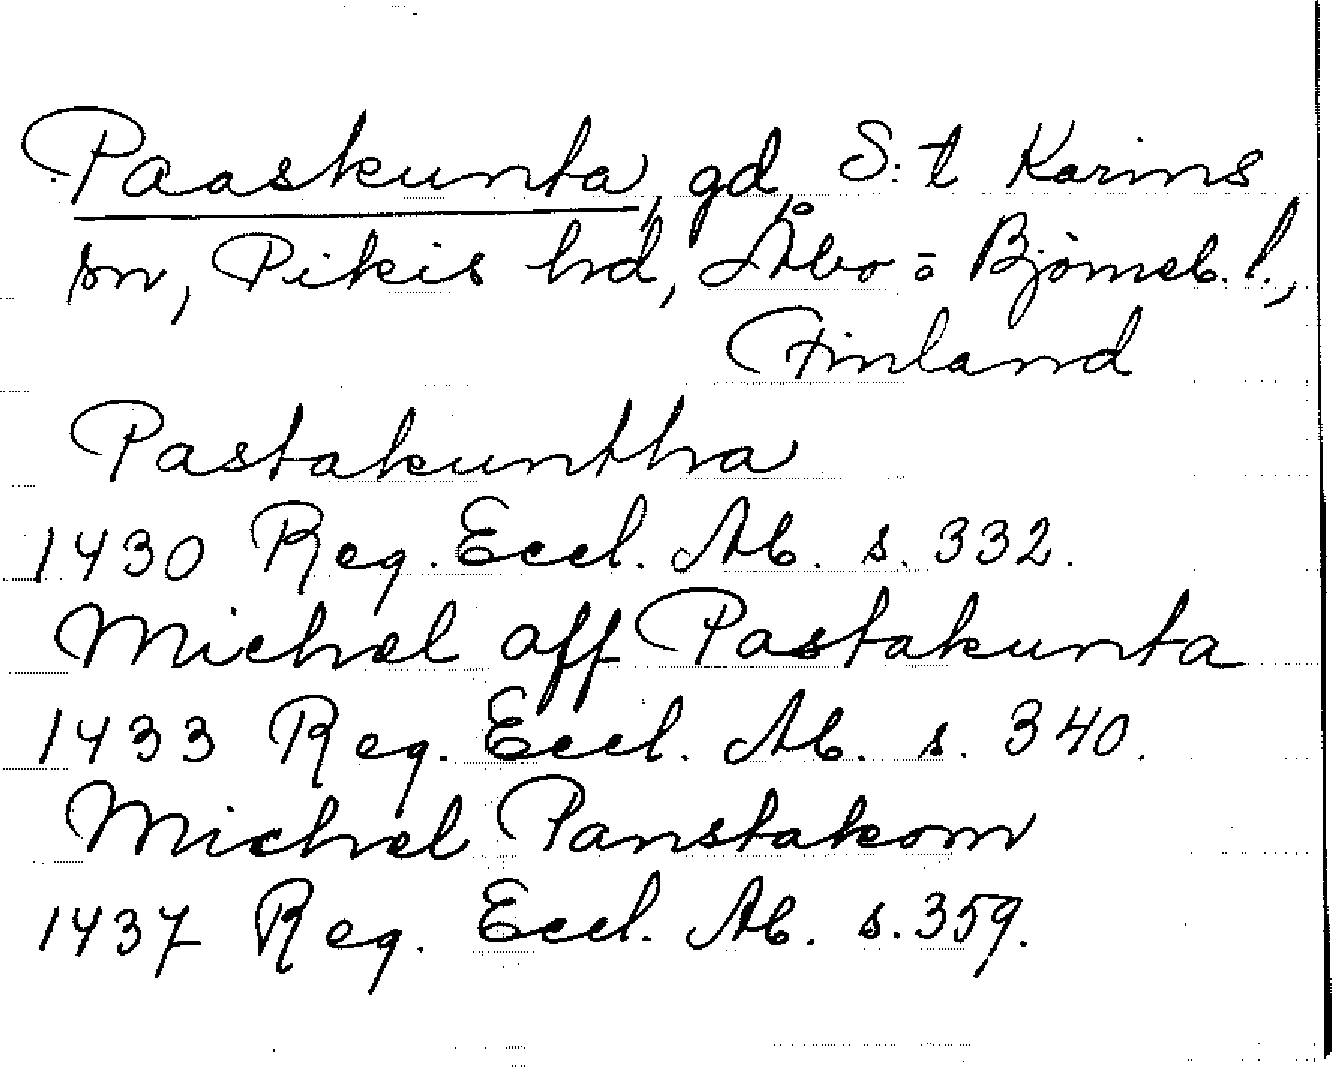 Paaskunta, gd, S:t Karins
sn, Pikis hd, Åbo = Björneb. l.,
Finland
Pastakuntha
1430 Reg. Eccl. Ab. s. 332.
Michel aff Pastakunta
1433 Reg. Eccl. Ab. s. 340.
Michel Panstakom
1437 Reg. Eccl. Ab. s. 359.